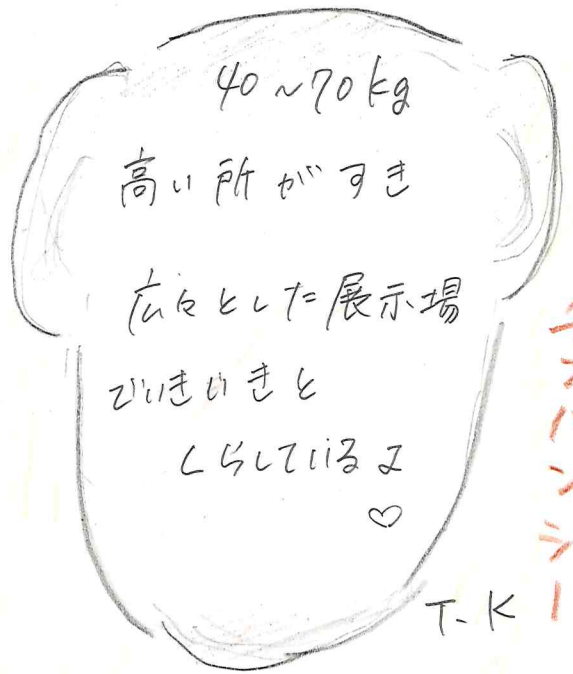 40~70kg
高い所がすき
広々とした展示場
でいきいきと
くらしているよ
♡
T.K
チンパンジー